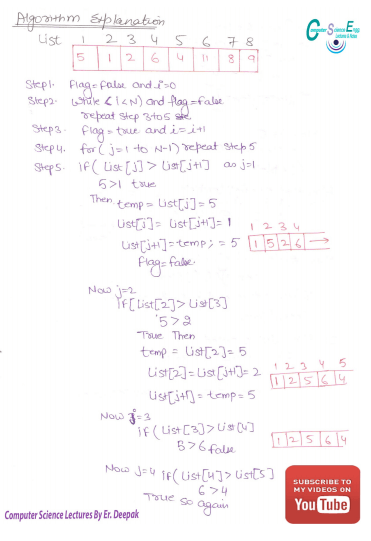 Algorithm Explanation
Computer Science Eggs
Lectures & Notes
List 1 2 3 4 5 6 7 8
5 1 2 6 4 11 8 9
Step1. Flag=false and i=0
Step2. while (i<N) and flag=false
repeat step 3 to 5
Step3. flag=true and i=i+1
Step4. for( j=1 to N-1) repeat step 5
Step5. if( List[j] > List[j+1] as j=1
5>1 true
Then temp = List[j] = 5
List[j] = List[j+1] = 1
List[j+1] = temp; = 5
1 2 3 4
1 5 2 6 →
flag=false.
Now j=2
if[ List[2] > List[3]
5>2
True Then
temp = List[2] = 5
List[2] = List[j+1] = 2
1 2 3 4 5
1 2 5 6 4
List[j+1] = temp = 5
Now j=3
if( List[3] > List[4]
5>6 false
1 2 5 6 4
Now j=4 if( List[4] > List[5]
6>4
True so again
SUBSCRIBE TO
MY VIDEOS ON
YouTube
Computer Science Lectures By Er. Deepak